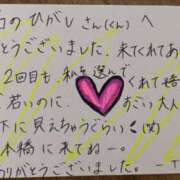 のひがし さん(くん) へ
とうございました、来てくれてあ
2回目も、私を選んでくれて嬉
若いのに、すごい大人
下に見えちゃうぐらい
本橋に来てねー。
りがとうございました。ーT